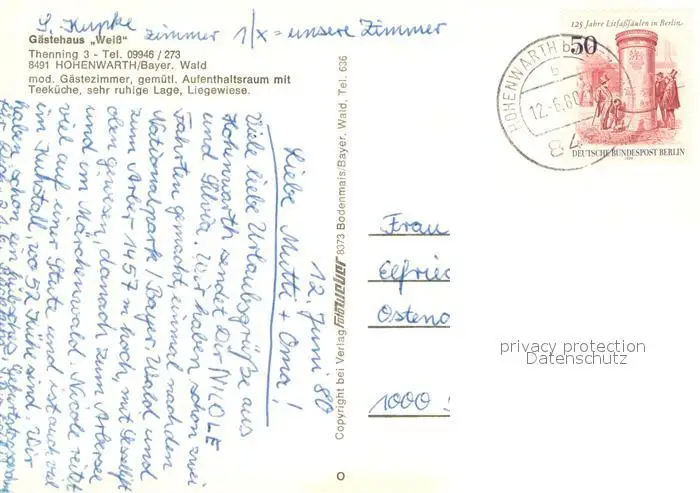 S. Kupke zimmer 1/x = unsere Zimmer
Gästehaus „Weiß“
Thenning 3 - Tel. 09946 / 273
8491 HOHENWARTH/Bayer. Wald
mod. Gästezimmer, gemütl. Aufenthaltsraum mit
Teeküche, sehr ruhige Lage, Liegewiese.
12. Juni 80
Liebe Mutti + Oma!
Viele liebe Urlaubsgrüße aus
Hohenwarth sendet Dir NICOLE
und Silvia. Wir haben schon zwei
Fahrten gemacht, einmal nach den
Nationalpark / Bayer. Wald und
zum Arber 1457 m hoch, mit
oben gewesen, danach zum Arbersee
und am Märchenwald. Nicole reitet
viel auf einer Stute und ist auch viel
im Kuhstall, wo 52 Kühe sind. Wir
haben schon ein hübsches
für
Copyright bei Verlag 8373 Bodenmais/Bayer. Wald, Tel. 636
125 Jahre Litfaßsäulen in Berlin
50
DEUTSCHE BUNDESPOST BERLIN
1979
HOHENWARTH b
b
12.-6.80
84
Frau
Elfried
Osteno
1000
privacy protection
Datenschutz